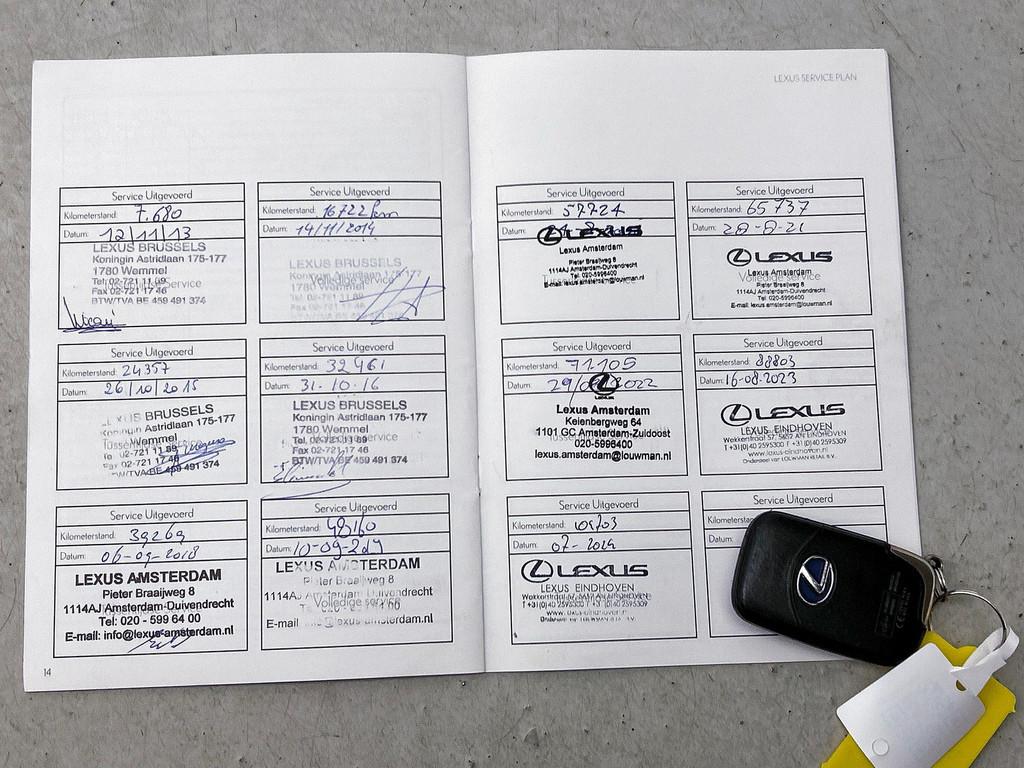 LEXUS SERVICE PLAN
Service Uitgevoerd
Kilometerstand: 7.680
Datum: 12/11/13
LEXUS BRUSSELS
Koningin Astridlaan 175-177
1780 Wemmel
Tel. 02-721 11 89
Fax 02-721 17 46
BTW/TVA BE 459 491 374
Service Uitgevoerd
Kilometerstand: 16722 km
Datum: 14/11/2014
LEXUS BRUSSELS
Koningin Astridlaan 175-177
1780 Wemmel
Volledige service
Tel. 02-721 11 89
Fax 02-721 17 46
BTW/TVA BE 459 491 374
Service Uitgevoerd
Kilometerstand: 24357
Datum: 26/10/2015
LEXUS BRUSSELS
Koningin Astridlaan 175-177
Wemmel
02-721 11 89
Fax 02-721 17 46
BTW/TVA BE 459 491 374
Service Uitgevoerd
Kilometerstand: 32461
Datum: 31-10-16
LEXUS BRUSSELS
Koningin Astridlaan 175-177
1780 Wemmel
Tel. 02-721 11 89
Fax 02-721 17 46
BTW/TVA BE 459 491 374
Service Uitgevoerd
Kilometerstand: 39269
Datum: 06-09-2018
LEXUS AMSTERDAM
Pieter Braaijweg 8
1114AJ Amsterdam-Duivendrecht
Tel: 020 - 599 64 00
E-mail: info@lexus-amsterdam.nl
Service Uitgevoerd
Kilometerstand: 48160
Datum: 10-09-2019
LEXUS AMSTERDAM
Pieter Braaijweg 8
1114AJ Amsterdam-Duivendrecht
Volledige service
E-mail @lexus-amsterdam.nl
14
Service Uitgevoerd
Kilometerstand: 57724
Datum:
Lexus Amsterdam
Pieter Braaijweg 8
1114AJ Amsterdam-Duivendrecht
Tel. 020-5996400
E-mail: lexus.amsterdam@louwman.nl
Service Uitgevoerd
Kilometerstand: 65737
Datum:
LEXUS
Lexus Amsterdam
Volledige service
Pieter Braaijweg 8
1114AJ Amsterdam-Duivendrecht
Tel. 020-5996400
E-mail: lexus.amsterdam@louwman.nl
Service Uitgevoerd
Kilometerstand: 71105
Datum: 2022
Lexus Amsterdam
Keienbergweg 64
1101 GC Amsterdam-Zuidoost
020-5996400
lexus.amsterdam@louwman.nl
Service Uitgevoerd
Kilometerstand: 88803
Datum: 16-08-2023
LEXUS
LEXUS EINDHOVEN
Wekkerstraat 57, 5652 AN EINDHOVEN
T +31(0)40 2595300 F +31(0)40 2595309
www.lexus-eindhoven.nl
Onderdeel van LOUWMAN RETAIL B.V.
Service Uitgevoerd
Kilometerstand:
Datum: 07-2024
LEXUS
LEXUS EINDHOVEN
Wekkerstraat 57, 5652 AN EINDHOVEN
T +31(0)40 2595300 F +31(0)40 2595309
Service Uitgevoerd
Kilometerstand:
Datum: